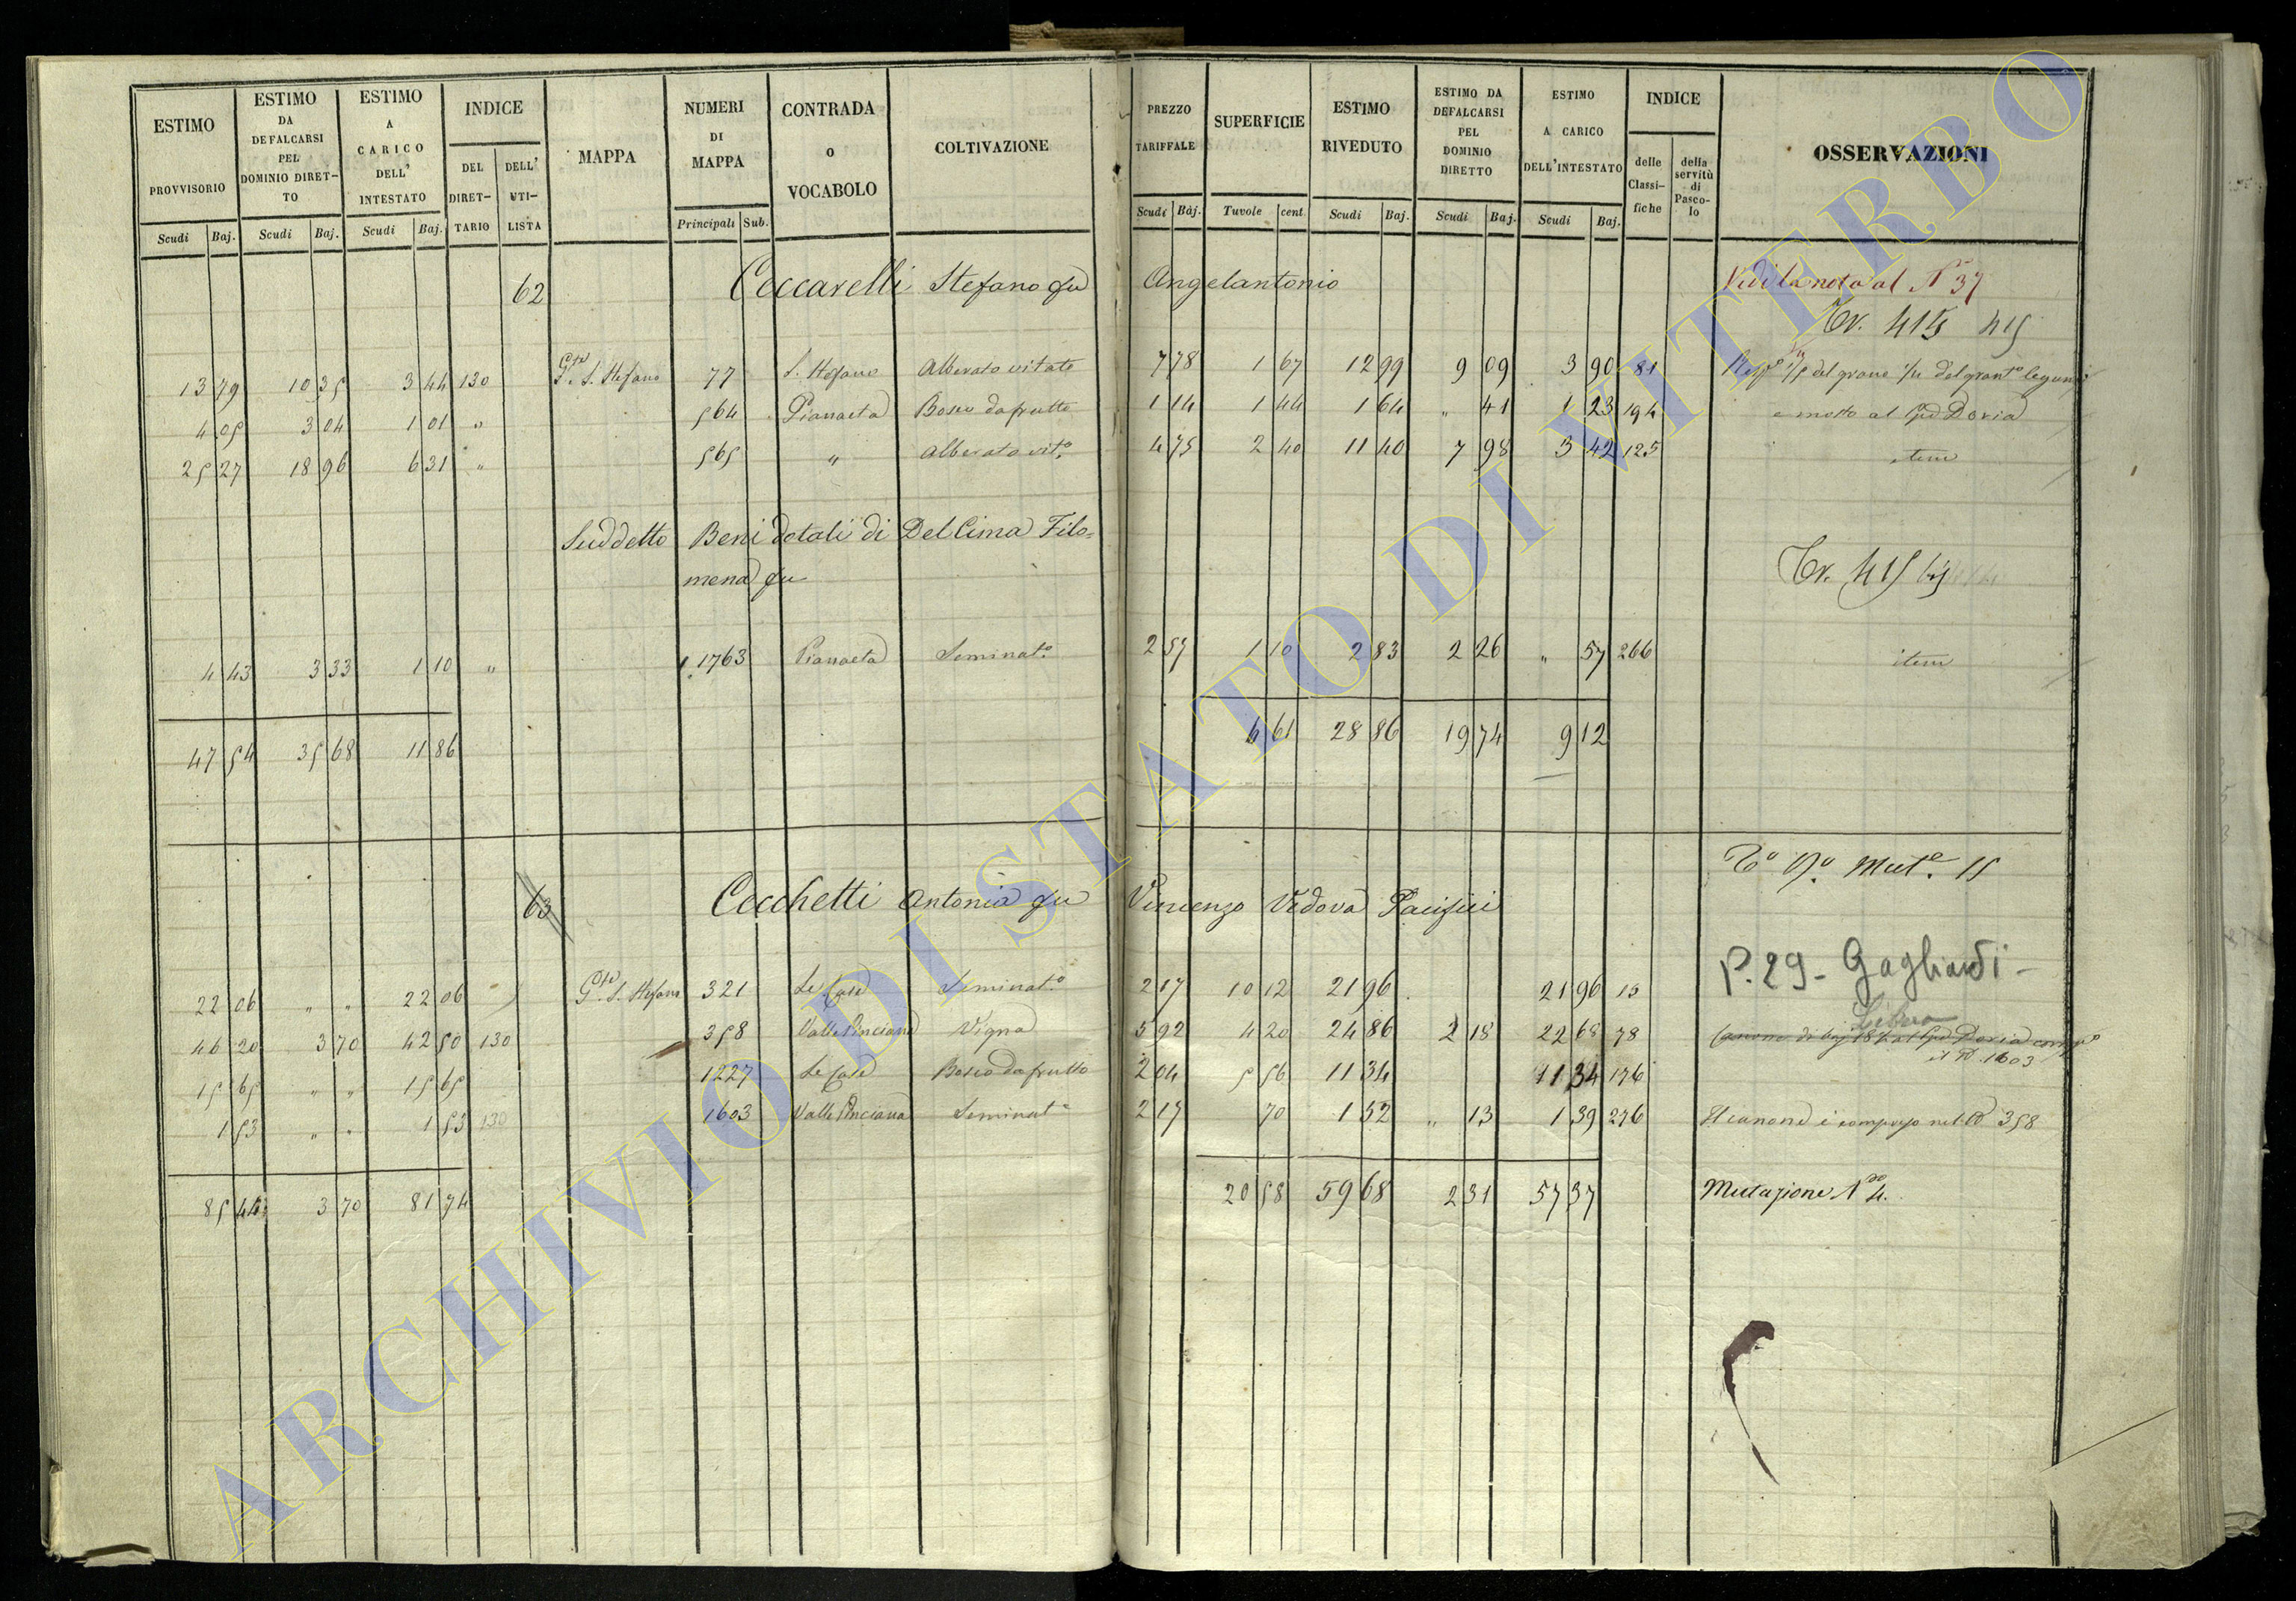 ESTIMO PROVVISORIO Scudi Baj.
ESTIMO DA DEFALCARSI PEL DOMINIO DIRETTO Scudi Baj.
ESTIMO A CARICO DELL' INTESTATO Scudi Baj.
INDICE DEL DIRETTARIO DELL' UTILISTA
MAPPA
NUMERI DI MAPPA Principali Sub.
CONTRADA O VOCABOLO
COLTIVAZIONE
PREZZO TARIFFALE Scudi Baj.
SUPERFICIE Tavole cent.
ESTIMO RIVEDUTO Scudi Baj.
ESTIMO DA DEFALCARSI PEL DOMINIO DIRETTO Scudi Baj.
ESTIMO A CARICO DELL'INTESTATO Scudi Baj.
INDICE delle Classifiche della servitù di Pascolo
OSSERVAZIONI
62 Ceccarelli Stefano fu Angelantonio Vedi la nota al N 37
Tr. 415
13 79 10 35 3 44 130 S. Stefano 77 S. Stefano Alberato vitato 7 78 1 67 12 99 9 09 3 90 81 1/5 del grano 1/4 del gran
4 05 3 04 1 01 " 564 Pianaeta Bosco da frutto 1 14 1 44 1 64 " 41 1 23 194 e mosto al Doria
25 27 18 96 6 31 " 565 " Alberato vit.o 4 75 2 40 11 40 7 98 3 42 125 item
Suddetto Beni dotali di Del Cima Filo=
mena fu Tr. 415
4 43 3 33 1 10 " 1763 Pianaeta Seminat.o 2 57 1 10 2 83 2 26 " 57 266 item
47 54 35 68 11 86 6 61 28 86 19 74 9 12
Mut.e 15
63 Cecchetti Antonia fu Vincenzo Vedova Pacifici
P. 29 - Gagliardi -
22 06 " " 22 06 S. Stefano 321 Le Case Seminat.o 2 17 10 12 21 96 21 96 15
Libero
46 20 3 70 42 50 130 358 Valle Pinciana Vigna 5 92 4 20 24 86 2 18 22 68 78 Canone di baj 18 al Doria
il N. 1603
15 65 " " 15 65 1227 Le Case Bosco da frutto 2 04 5 56 11 34 11 34 176
1 53 " " 1 53 130 1603 Valle Pinciana Seminat.o 2 17 70 1 52 " 13 1 39 276 Il canone è compreso nel N 358
85 44 3 70 81 74 20 58 59 68 2 31 57 37 Mutazione N 4.
ARCHIVIO DI STATO DI VITERBO